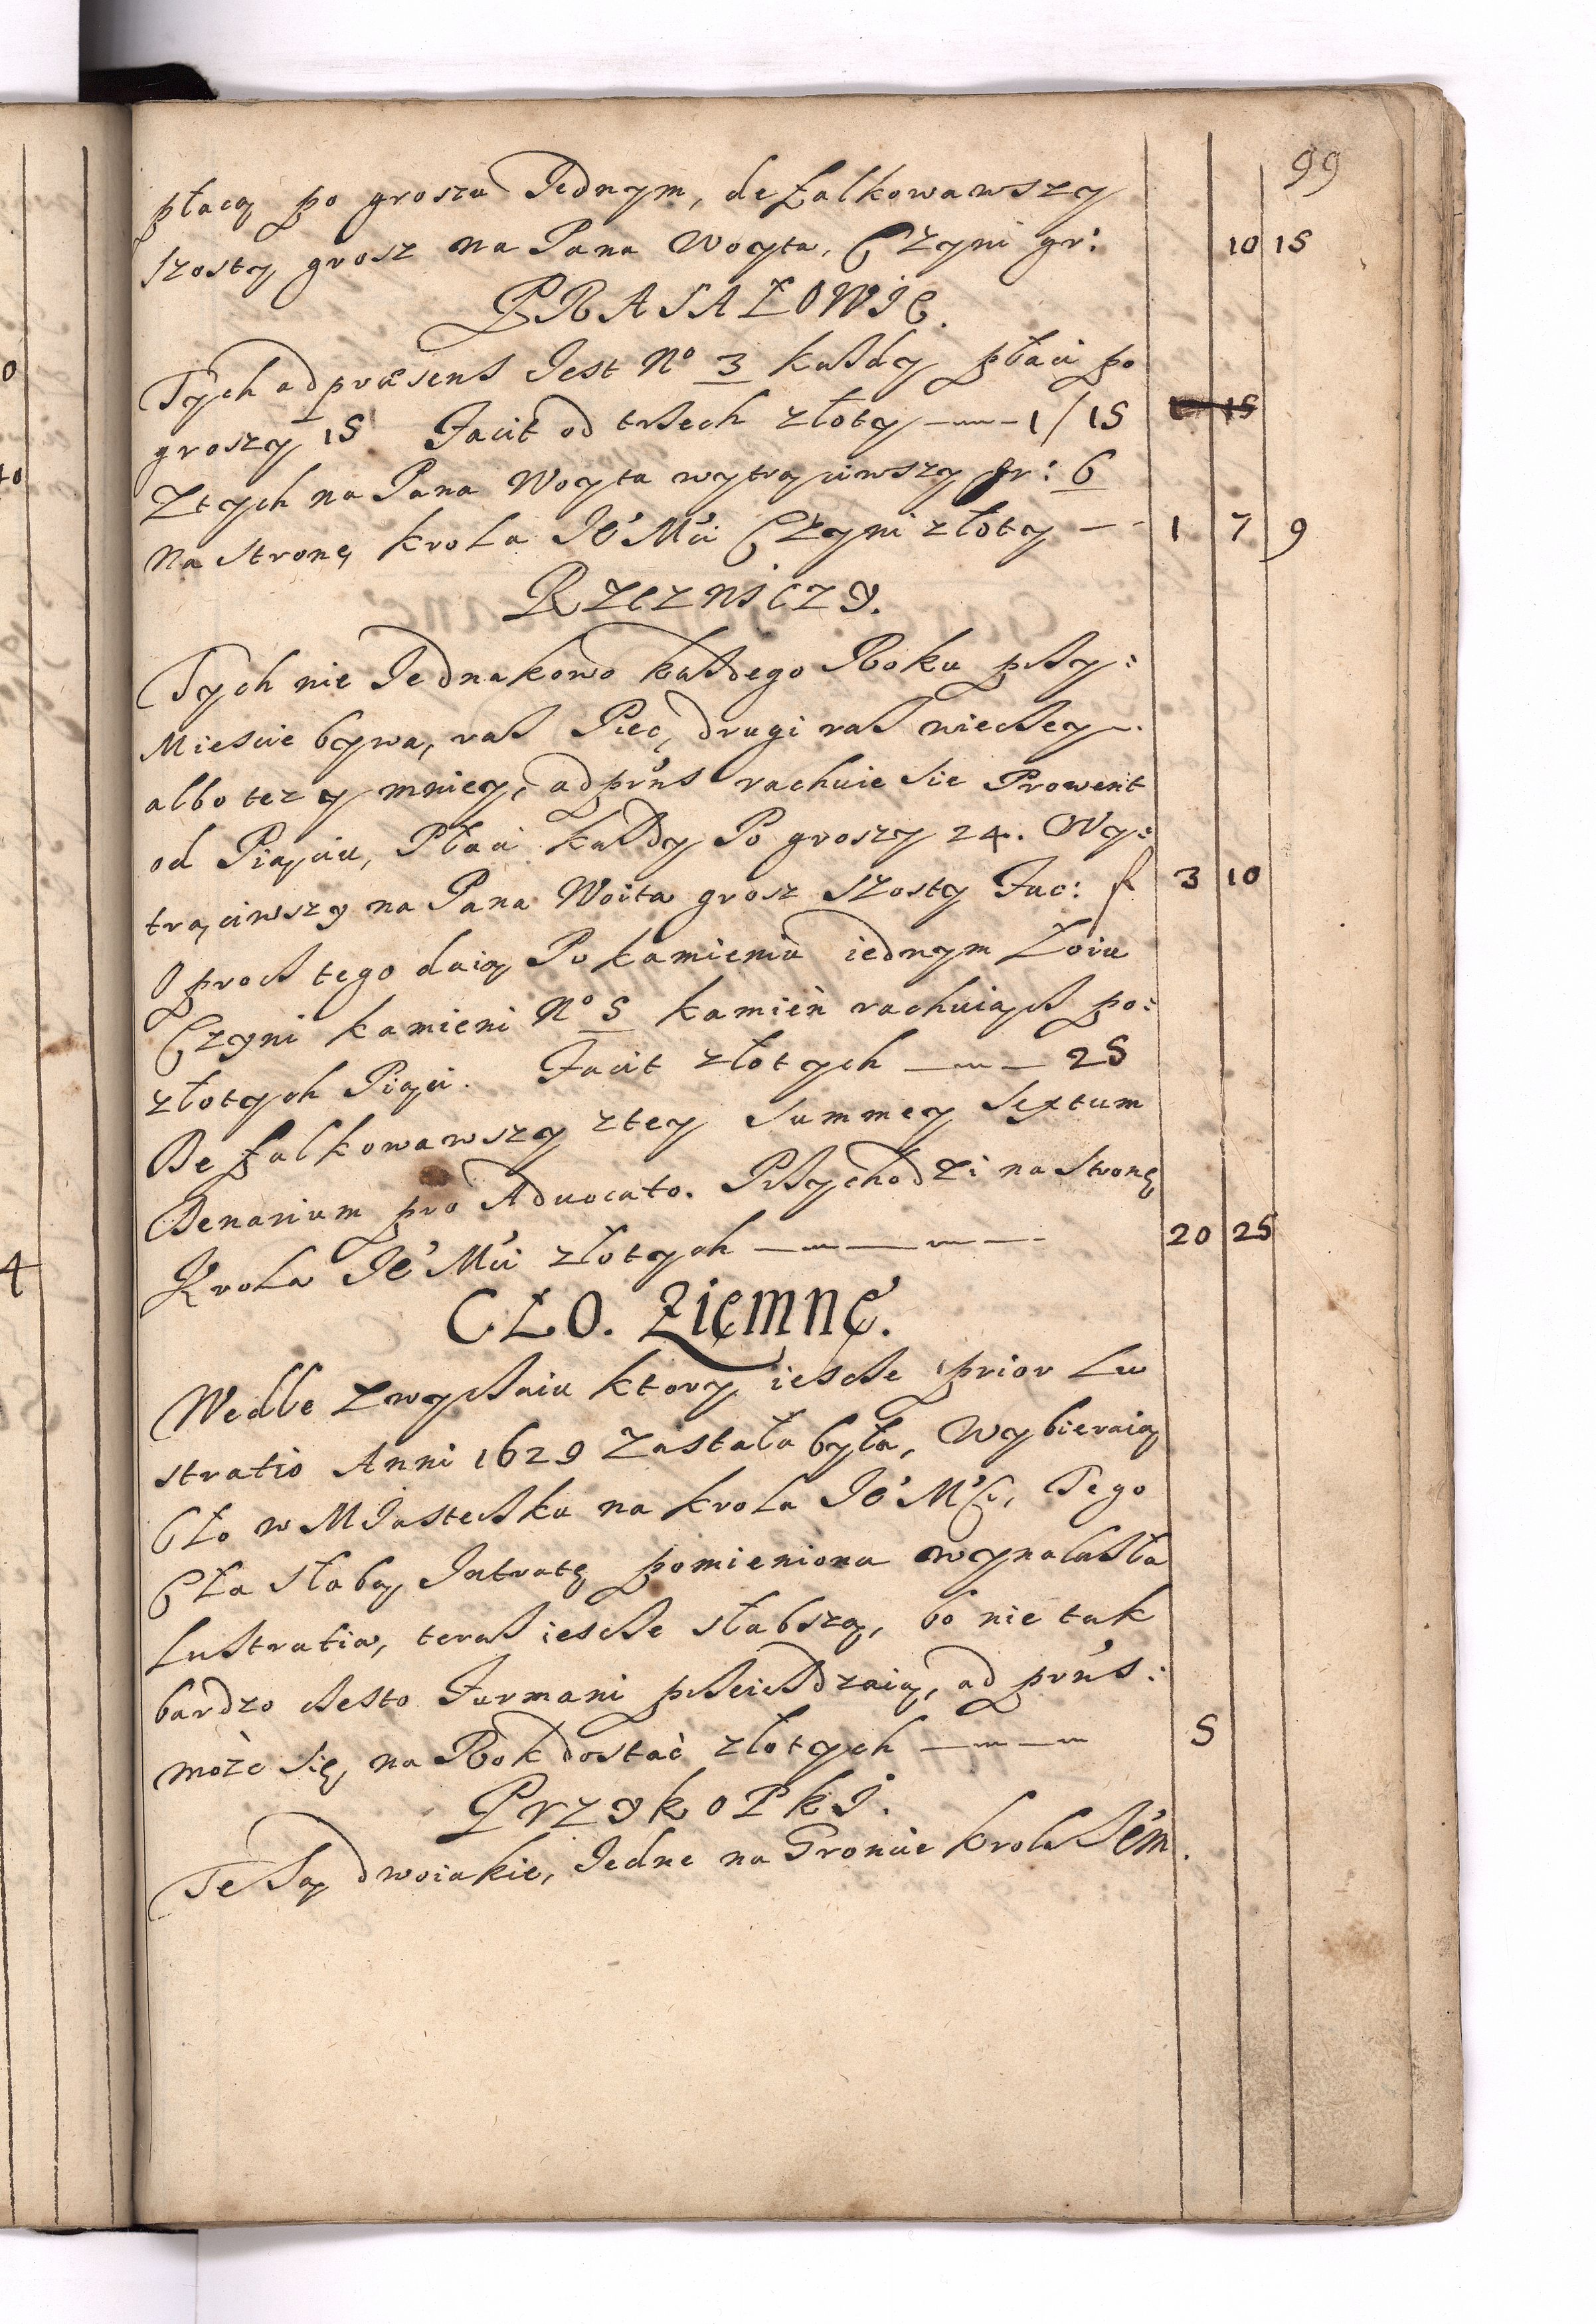 99
płacą po groszu Jednym, defalkowawszy
szosty grosz na Pana Woyta, Czyni gr: 10 15
PRASAŁOWIE.
Tych ad præsens Jest No 3 kaßdy płaci po
groszy 15 Facit od trßech złoty 1/15 1 15
Ztych na Pana Woyta wytrąciwszy gr: 6
na stronę krola Je͛ Mći Czyni złoty 1 7 9
RZEZNICZY.
Tych nie Jednakowo kaßdego Roku pßy:
Miescie bywa, raß Pięc, drugi raß wiecßey
albo tez y mniey, ad prńs rachuie sie Prowent
od Piąciu, Płaci kaßdy Po groszy 24. Wy:
trąciwszy na Pana Woita grosz szosty Fac: f 3 10
Oprocß tego daią Po kamieniu iednym Łoiu
Czyni kamieni No 5 kamień rachuiącß po:
złotych Piąci. Facit złotych 25
Defalkowawszy ztey summey sextum
Denarium pro Aduocato. Pßychodzi na stronę
Krola Je͛ Mći złotych 20 25
CŁO. Ziemne.
Wedle Zwycßaiu ktory iescße prior Lu
stratio Anni 1629 Zastała była, Wybieraią
Cło w Miastecßku na krola Je͛ Mći, Tego
Cła słabą Intratę pomieniona wynalaßła
Lustratia, teraß iescße słabszą, bo nie tak
bardzo cßesto Furmani pßeieżdzaią, ad prńs:
może się, na Rok dostać złotych 5
PrzykoPki.
Te są dwoiakie, Jedne na Groncie krola Jém.